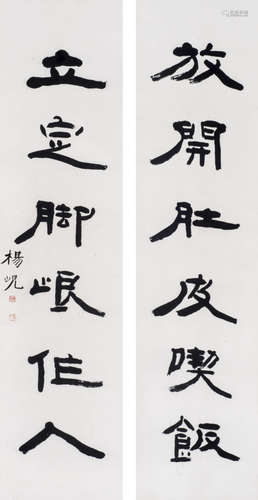 放開肚皮喫飯
立定脚跟作人
楊峴